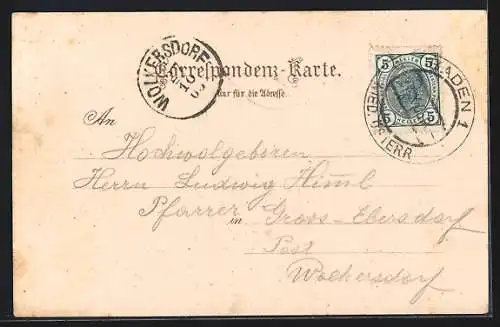 WOLKERSDORF
Correspondenz-Karte.
Nur für die Adresse.
5 HELLER 5
5 HELLER 5
BADEN 1
NIED. ÖSTERR
An
Hochwolgeboren
Herrn Ludwig Himml
Pfarrer in Gross-Ebersdorf
Post
Wolkersdorf